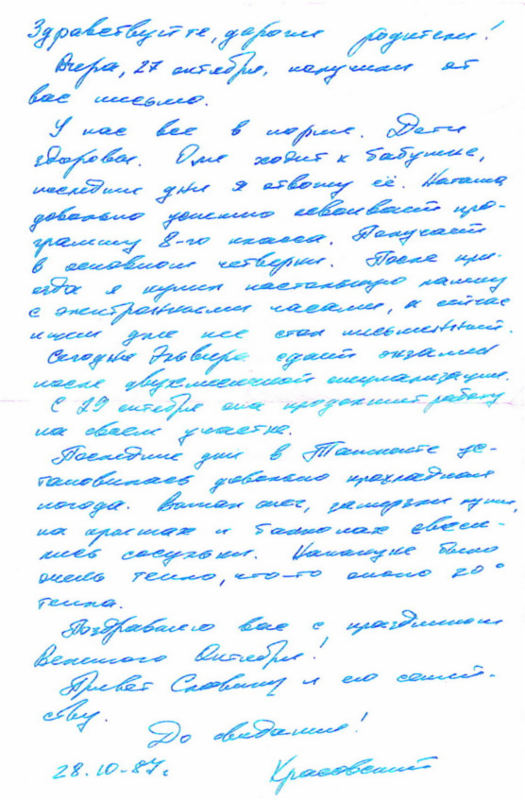 Здравствуйте, дорогие родители!
Вчера, 27 октября, получили от
вас письмо.
У нас все в норме. Дети
здоровы. Оля ходит к бабушке,
последние дни я отвожу её. Наташа
довольно успешно осваивает про-
грамму 8-го класса. Получает
в основном четверки. После при-
езда я купил настольную лампу
с электронными часами, а сейчас
ищем для нее стол письменный.
Сегодня Эльвира сдает экзамен
после двухмесячной специализации.
С 29 октября она продолжит работу
на своем участке.
Последние дни в Ташкенте ус-
тановилась довольно прохладная
погода. Выпал снег, замерзли лужи,
на крышах и балконах свеси-
лись сосульки. Накануне было
очень тепло, что-то около 20°
тепла.
Поздравляю вас с праздником
Великого Октября!
Привет Славику и его семей-
ству.
До свидания!
28.10-87г. Красовский